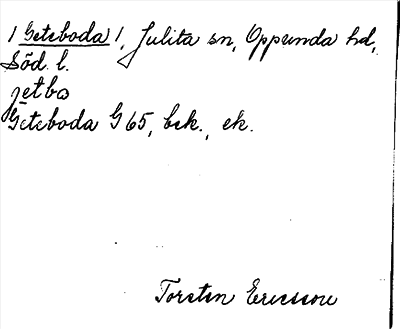 /Geteboda/, Julita sn, Oppunda hd,
Söd. l.
jetbo
Geteboda G 65, bek., ek.
Torsten Ericsson